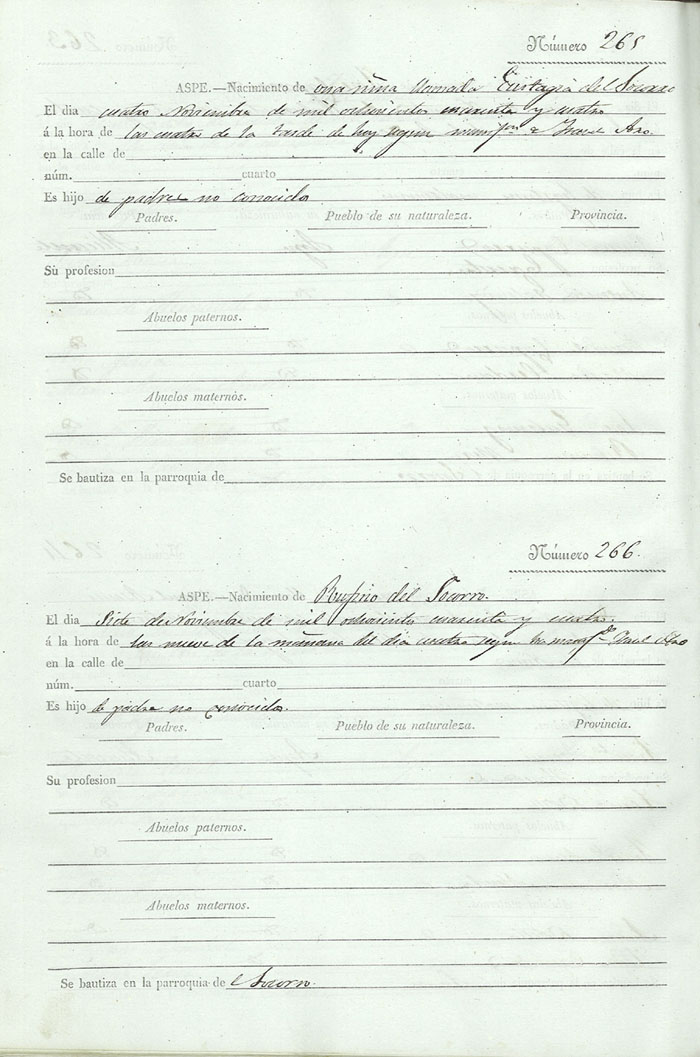 Número 265
ASPE.—Nacimiento de una niña llamada Eustaqia del Socorro
El dia cuatro Noviembre de mil ochocientos cuarenta y cuatro
á la hora de las cuatro de la tarde de hoy segun
en la calle de
núm. cuarto
Es hijo de padres no conocidos
Padres. Pueblo de su naturaleza. Provincia.
Su profesion
Abuelos paternos.
Abuelos maternos.
Se bautiza en la parroquia de
Número 266.
ASPE.—Nacimiento de Rufino del Socorro.
El dia Siete de Noviembre de mil ochocientos cuarenta y cuatro.
á la hora de las nueve de la mañana del dia cuatro segun ha
en la calle de
núm. cuarto
Es hijo de padres no conocidos.
Padres. Pueblo de su naturaleza. Provincia.
Su profesion
Abuelos paternos.
Abuelos maternos.
Se bautiza en la parroquia de el Socorro.